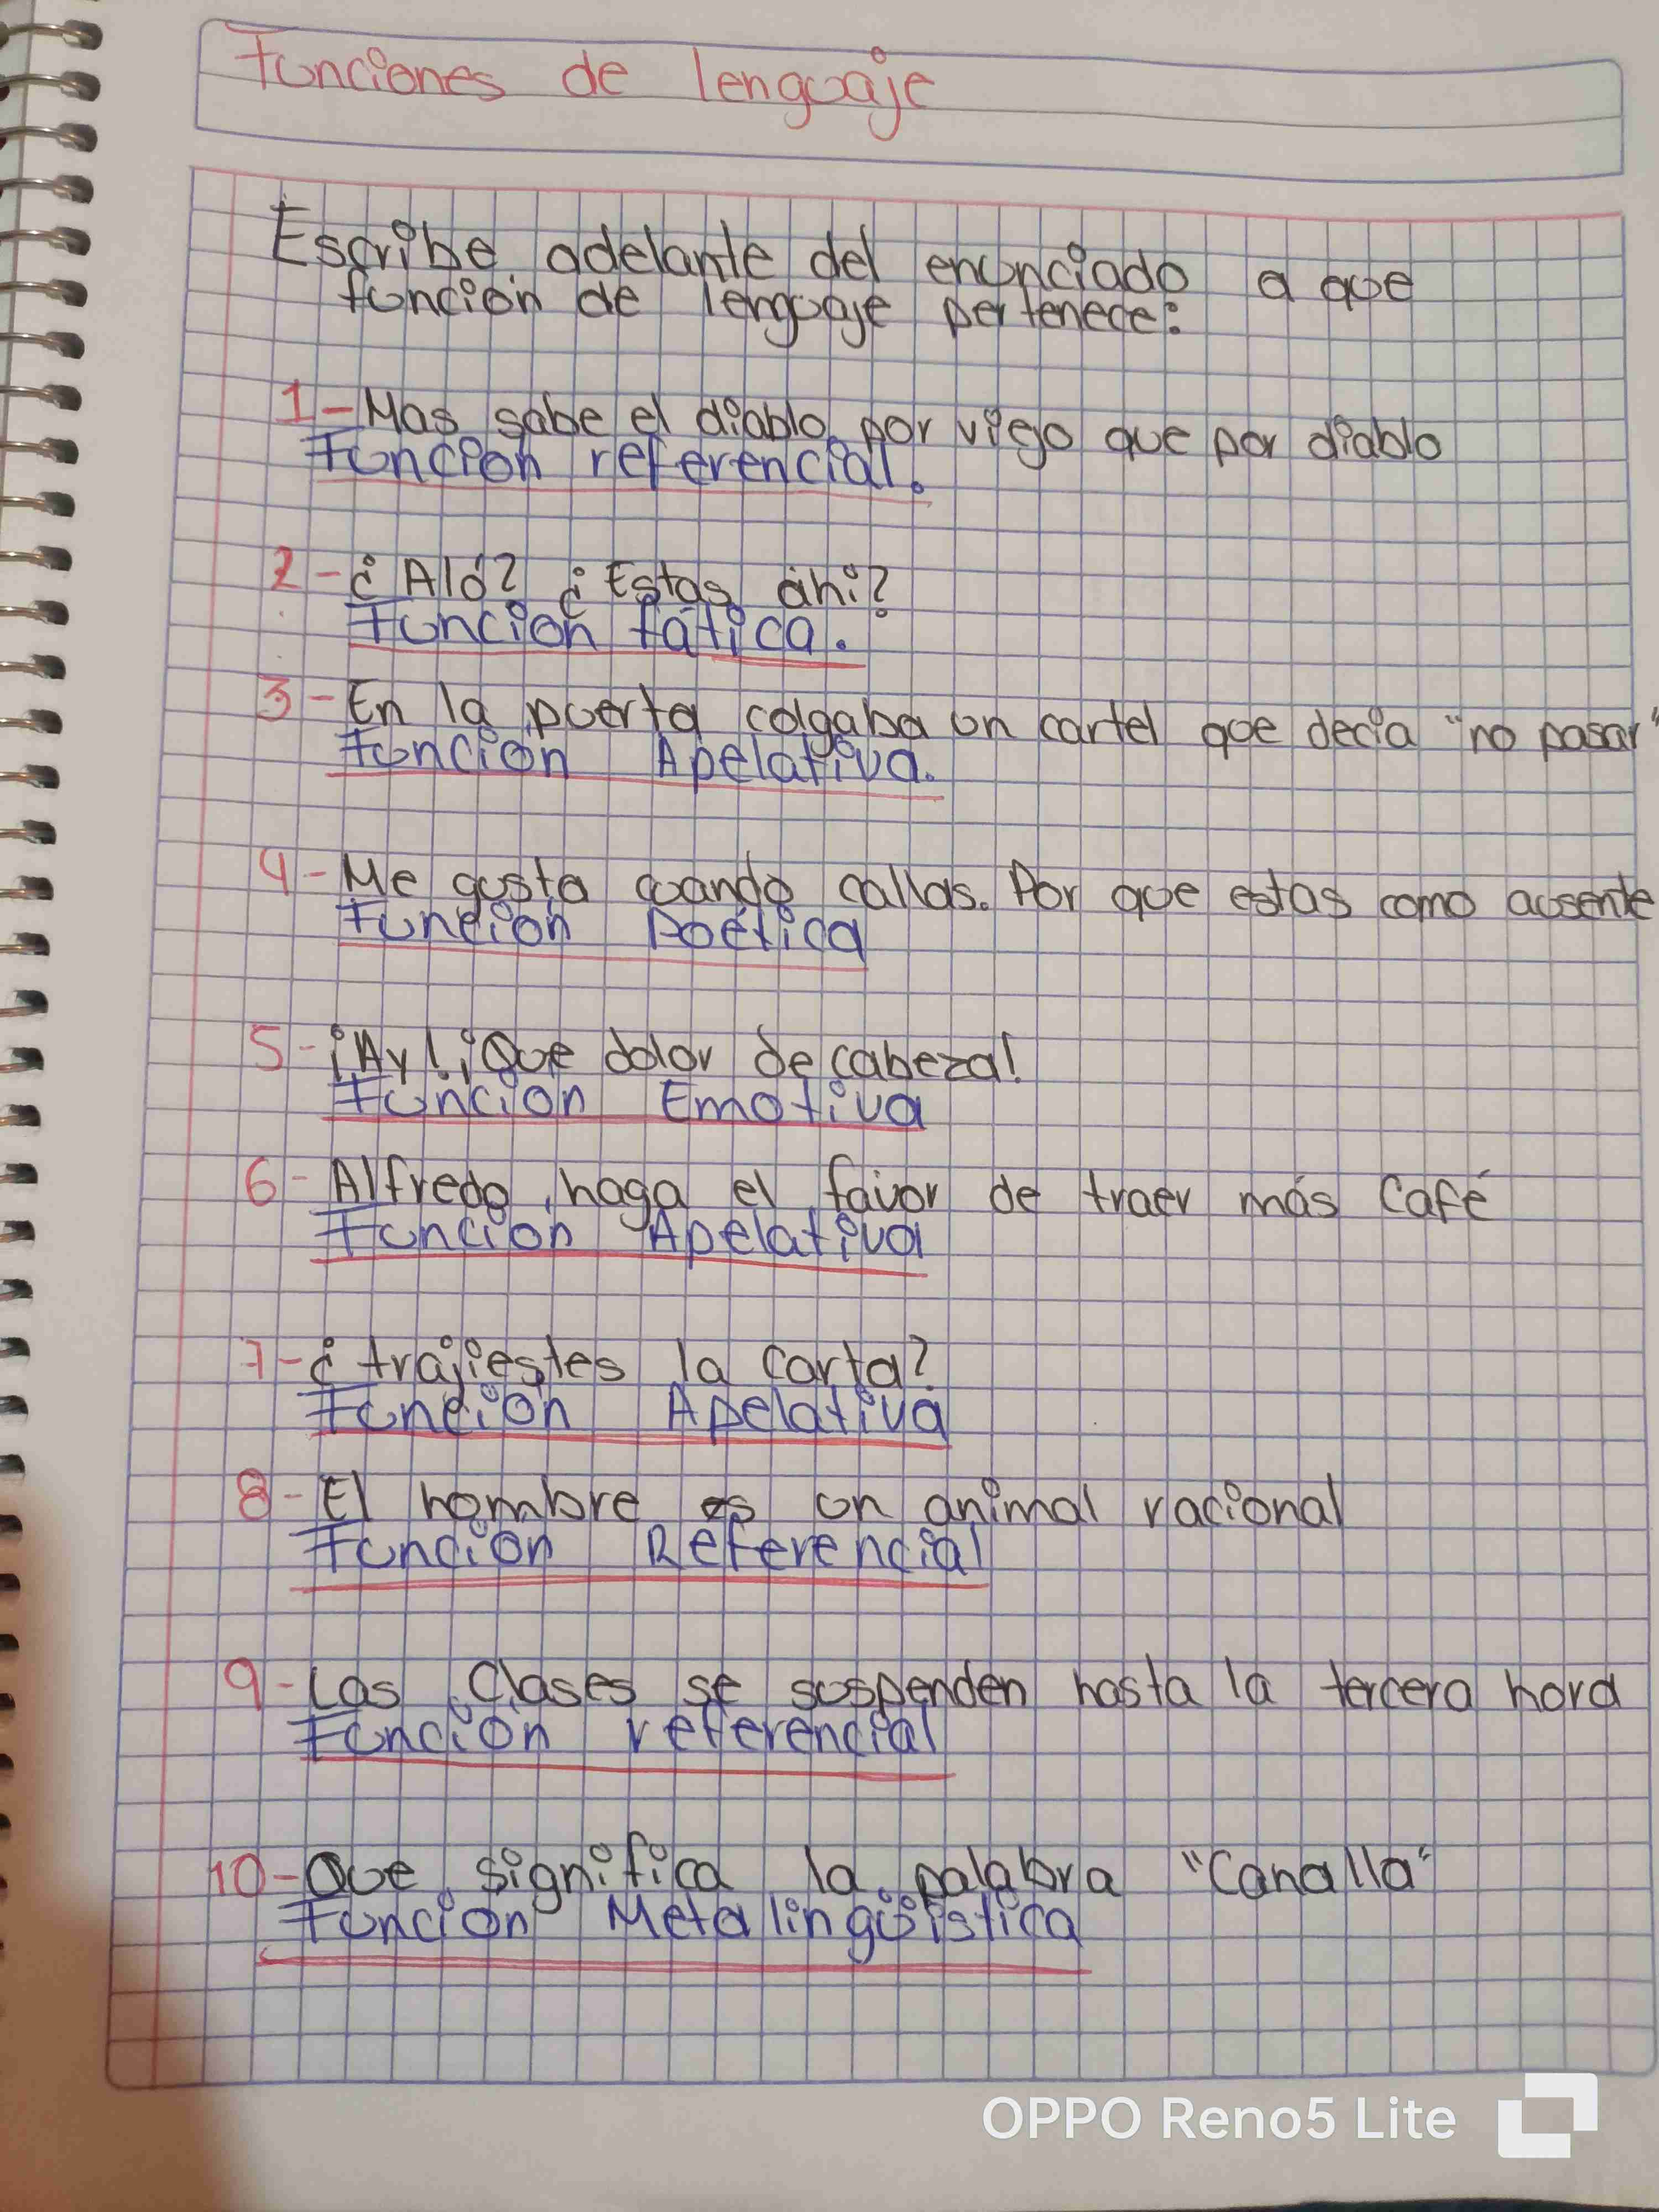 Funciones de lenguaje
Escribe adelante del enunciado a que
función de lenguaje pertenece:
1-Mas sabe el diablo por viejo que por diablo
Función referencial.
2-¿Aló? ¿Estas ahi?
Función fática.
3-En la puerta colgaba un cartel que decia "no pasar"
Función Apelativa.
4-Me gusta cuando callas. Por que estas como ausente
Función Poética
5-¡Ay! ¡Que dolor de cabeza!
Función Emotiva
6-Alfredo, haga el favor de traer más Café
Función Apelativa
7-¿trajiestes la carta?
Función Apelativa
8-El hombre es un animal racional
Función Referencial
9-Las Clases se suspenden hasta la tercera hora
Función referencial
10-Que significa la palabra "Canalla"
Función Metalingüistica
OPPO Reno5 Lite